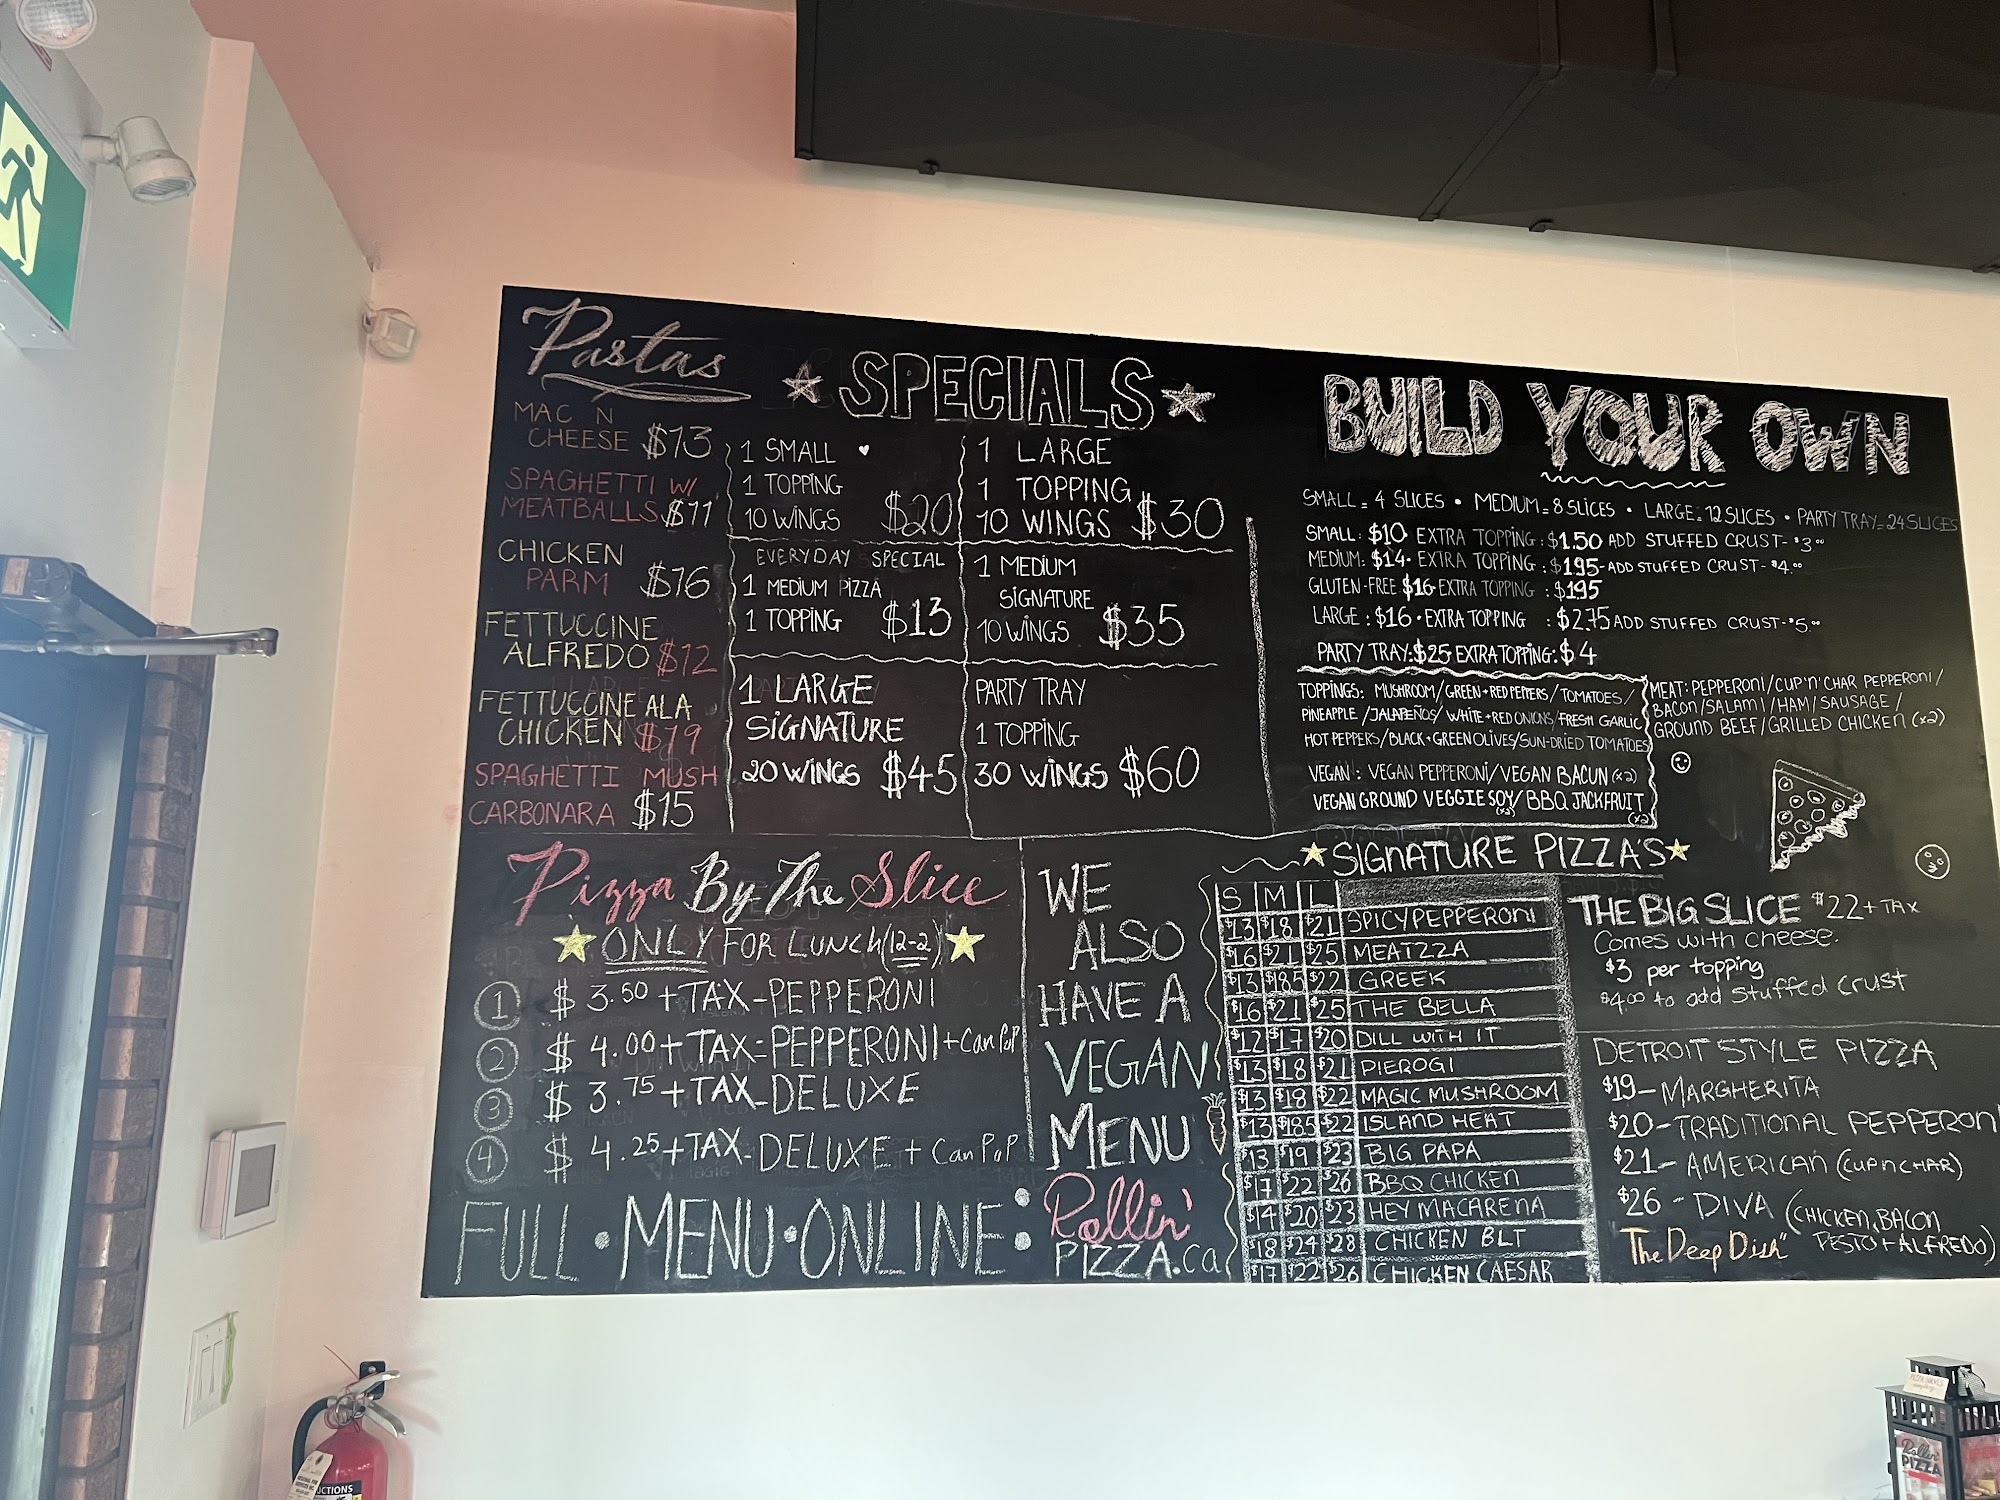 Pastas
MAC N
CHEESE $13
SPAGHETTI W/
MEATBALLS $11
CHICKEN
PARM $16
FETTUCCINE
ALFREDO $12
FETTUCCINE ALA
CHICKEN $19
SPAGHETTI MUSH
CARBONARA $15
SPECIALS
1 SMALL
1 TOPPING
10 WINGS $20
1 LARGE
1 TOPPING
10 WINGS $30
EVERYDAY SPECIAL
1 MEDIUM PIZZA
1 TOPPING $13
1 MEDIUM
SIGNATURE
10 WINGS $35
1 LARGE
SIGNATURE
20 WINGS $45
PARTY TRAY
1 TOPPING
30 WINGS $60
BUILD YOUR OWN
SMALL = 4 SLICES • MEDIUM = 8 SLICES • LARGE = 12 SLICES • PARTY TRAY = 24 SLICES
SMALL: $10 EXTRA TOPPING: $1.50 ADD STUFFED CRUST- $3.00
MEDIUM: $14 • EXTRA TOPPING: $195 - ADD STUFFED CRUST - $4.00
GLUTEN-FREE $16 EXTRA TOPPING: $195
LARGE: $16 • EXTRA TOPPING : $2.75 ADD STUFFED CRUST - $5.00
PARTY TRAY: $25 EXTRA TOPPING: $4
TOPPINGS: MUSHROOM/GREEN+RED PEPPERS/TOMATOES/
PINEAPPLE/JALAPEÑOS/WHITE+RED ONIONS/FRESH GARLIC
HOT PEPPERS/BLACK+GREEN OLIVES/SUN-DRIED TOMATOES
VEGAN: VEGAN PEPPERONI/VEGAN BACUN (x2)
VEGAN GROUND VEGGIE SOY/BBQ JACKFRUIT
(x2) (x2)
MEAT: PEPPERONI/CUP'N'CHAR PEPPERONI/
BACON/SALAMI/HAM/SAUSAGE/
GROUND BEEF/GRILLED CHICKEN (x2)
Pizza By The Slice
ONLY FOR LUNCH (12-2)
1 $3.50 + TAX - PEPPERONI
2 $4.00 + TAX - PEPPERONI + Can PoP
3 $3.75 + TAX - DELUXE
4 $4.25 + TAX - DELUXE + Can PoP
FULL • MENU • ONLINE:
Rollin'
PIZZA.ca
WE
ALSO
HAVE A
VEGAN
MENU
SIGNATURE PIZZA'S
S M L
$13 $18 $21 SPICY PEPPERONI
$16 $21 $25 MEATZZA
$13 $185 $22 GREEK
$16 $21 $25 THE BELLA
$12 $17 $20 DILL WITH IT
$13 $18 $21 PIEROGI
$13 $18 $22 MAGIC MUSHROOM
$13 $185 $22 ISLAND HEAT
$13 $19 $23 BIG PAPA
$17 $22 $26 BBQ CHICKEN
$14 $20 $23 HEY MACARENA
$18 $24 $28 CHICKEN BLT
$17 $22 $26 CHICKEN CAESAR
THE BIG SLICE $22 + TAX
Comes with cheese.
$3 per topping
$4.00 to add Stuffed Crust
DETROIT STYLE PIZZA
$19 - MARGHERITA
$20 - TRADITIONAL PEPPERONI
$21 - AMERICAN (CUP N CHAR)
$26 - DIVA (CHICKEN, BACON
PESTO + ALFREDO)
The Deep Dish"
Rollin'
PIZZA